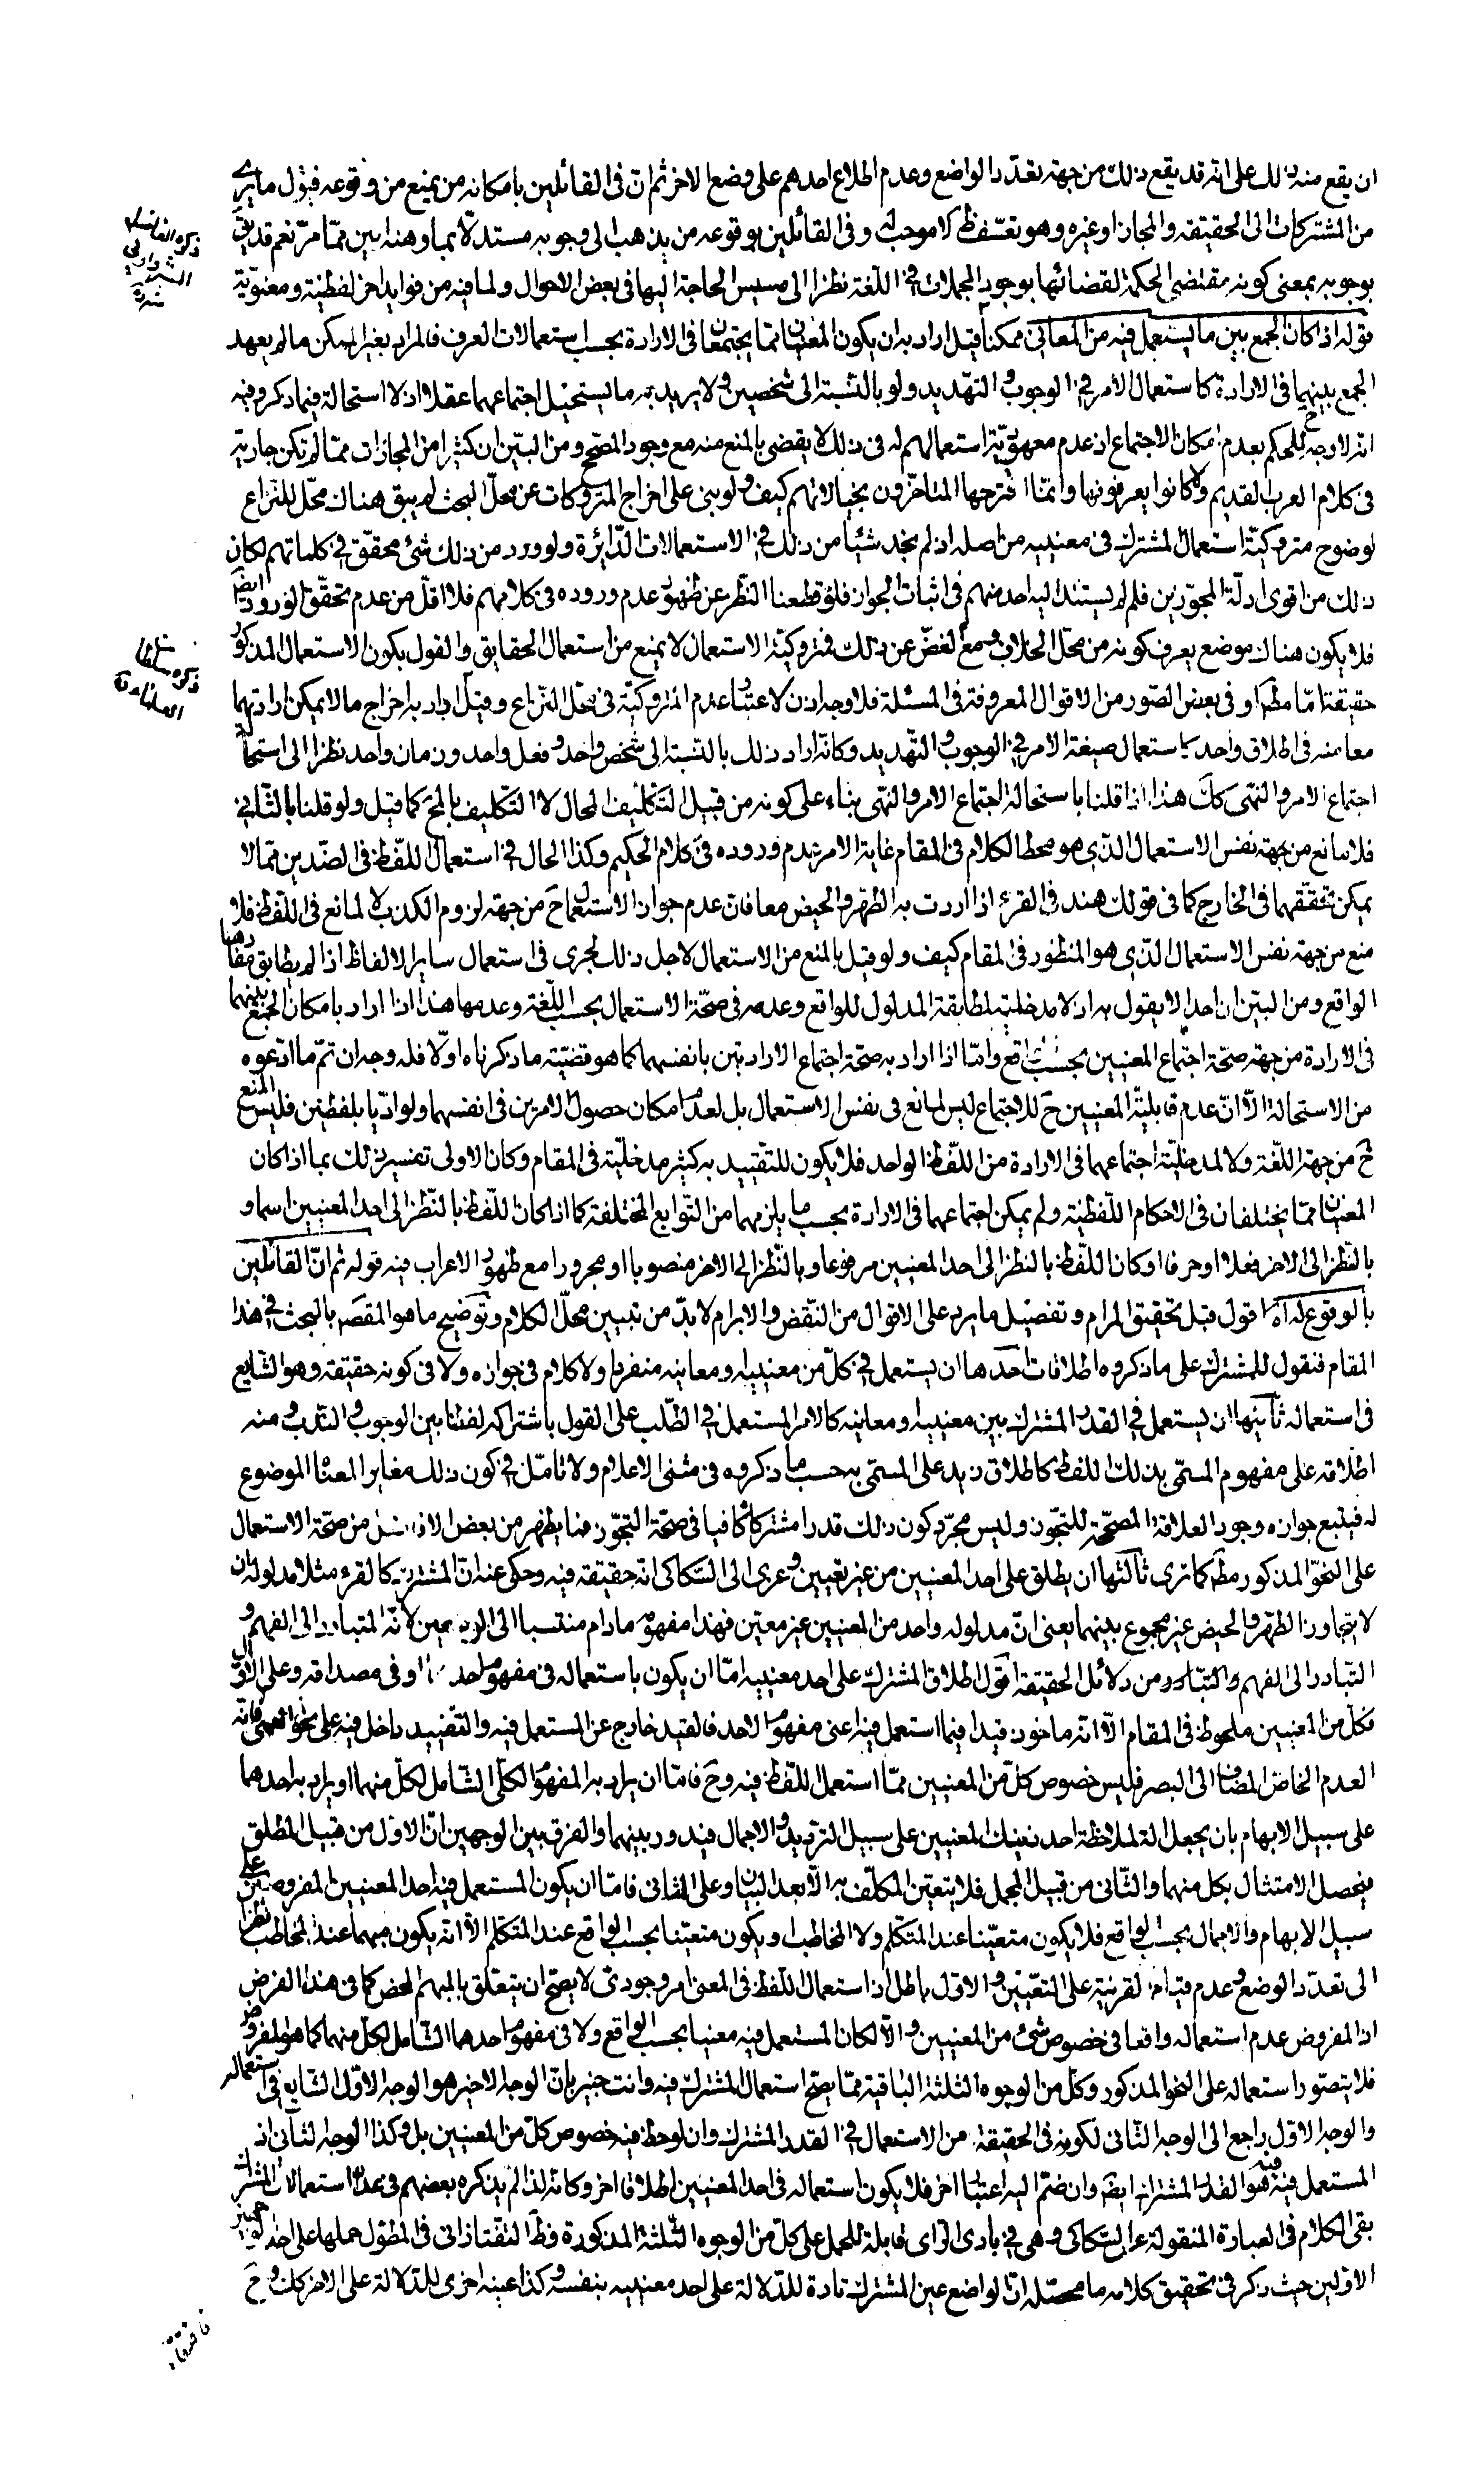 ان يقع منه ذلك على انه قد يقع ذلك من جهة تعدد الواضع وعدم اطلاع احدهم على وضع الاخر ثم ان فى القائلين بامكانه من يمنع من وقوعه فيؤل ما يرى
من المشتركات الى الحقيقة والمجاز او غيره وهو تعسف ظ لا موجب له وفى القائلين بوقوعه من يذهب الى وجوبه مستدلا بما وهنه بين مما مر نعم قد يق
بوجوبه بمعنى كونه مقتضى الحكمة لقضائها بوجود المجملات فى اللغة نظرا الى مسيس الحاجة اليها فى بعض الاحوال ولما فيه من فوايد اخر لفظية ومعنوية
قوله اذ كان الجمع بين ما يستعمل فيه من المعانى ممكنا قيل اراد به ان يكون المعنيان مما يجتمعان فى الارادة بحسب استعمالات العرف فالمراد بغير الممكن ما لم يعهد
الجمع بينهما فى الارادة كاستعمال الامر فى الوجوب والتهديد ولو بالنسبة الى شخصين ولا يريد به ما يستحيل اجتماعهما عقلا اذ لا استحالة فيما ذكر وفيه
انه لا وجه ح للحكم بعدم امكان الاجتماع اذ عدم معهودية استعمالهم له فى ذلك لا يقضى بالمنع منه مع وجود المصحح ومن البين ان كثيرا من المجازات مما لم تكن جارية
فى كلام العرب القديم ولا كانوا يعرفونها وانما اقترحها المتاخرون بخيالاتهم كيف ولو بنى على اخراج المتروكات عن محل البحث لم يبق هناك محل للنزاع
لوضوح متروكية استعمال المشترك فى معنييه من اصله اذ لم نجد شيئا من ذلك فى الاستعمالات الدائرة ولو ورد من ذلك شئ محقق فى كلماتهم لكان
ذلك من اقوى ادلة المجوزين فلم لم يستند اليه احد منهم فى اثبات الجواز فلو قطعنا النظر عن ظهور عدم وروده فى كلامهم فلا اقل من عدم تحقق الورود ايضا
فلا يكون هناك موضع يعرف كونه من محل الخلاف ومع الغض عن ذلك فمتروكية الاستعمال لا يمنع من استعمال الحقايق والقول بكون الاستعمال المذكور
حقيقة اما مطلقا او فى بعض الصور من الاقوال المعروفة فى المسئلة فلا وجه اذن لاعتبار عدم المتروكية فى محل النزاع وقيل اراد به اخراج ما لا يمكن ارادتهما
معا منه فى اطلاق واحد كاستعمال صيغة الامر فى الوجوب والتهديد وكانه اراد ذلك بالنسبة الى شخص واحد وفعل واحد وزمان واحد نظرا الى استحالة
اجتماع الامر والنهى كك هذا اذا قلنا باستحالة اجتماع الامر والنهى بناء على كونه من قبيل التكليف المحال لا التكليف بالمح كما قيل ولو قلنا بالثانى
فلا مانع من جهة نفس الاستعمال الذى هو محط الكلام فى المقام غاية الامر عدم وروده فى كلام الحكيم وكذا الحال فى استعمال اللفظ فى الضدين مما لا
يمكن تحققهما فى الخارج كما فى قولك هند فى القرء اذا اردت به الطهر والحيض معا فان عدم جواز الاستعمال ح من جهة لزوم الكذب لا لمانع فى اللفظ فلا
منع من جهة نفس الاستعمال الذى هو المنظور فى المقام كيف ولو قيل بالمنع من الاستعمال لاجل ذلك لجرى فى استعمال ساير الالفاظ اذا لم يطابق مفادها
الواقع ومن البين ان احدا لا يقول به اذ لا مدخلية لمطابقة المدلول للواقع وعدمه فى صحة الاستعمال بحسب اللغة وعدمها هذا اذا اراد بامكان الجمع بينهما
فى الارادة من جهة صحة اجتماع المعنيين بحسب الواقع واما اذا اراد به صحة اجتماع الارادتين بانفسهما كما هو قضيته ما ذكرناه اولا فله وجه ان تم ما ادعوه
من الاستحالة الا ان عدم قابلية المعنيين ح للاجتماع ليس لمانع فى نفس الاستعمال بل لعدم امكان حصول الامرين فى انفسهما ولو اديا بلفظين فليس المنع
ح من جهة اللغة ولا لمدخلية اجتماعهما فى الارادة من اللفظ الواحد فلا يكون للتقييد به كثير مدخلية فى المقام وكان الاولى تفسير ذلك بما اذا كان
المعنيان مما يختلفان فى الاحكام اللفظية ولم يمكن اجتماعهما فى الارادة بحسب ما يلزمهما من التوابع المختلفة كما اذا كان اللفظ بالنظر الى احد المعنيين اسما و
بالنظر الى الاخر فعلا او حرفا او كان اللفظ بالنظر الى احد المعنيين مرفوعا وبالنظر الى الاخر منصوبا او مجرورا مع ظهور الاعراب فيه قوله ثم ان القائلين
بالوقوع له اه اقول قبل تحقيق المرام وتفصيل ما يرد على الاقوال من النقض والابرام لا بد من تبيين محل الكلام وتوضيح ما هو المقصد بالبحث فى هذا
المقام فنقول للمشترك على ما ذكروه اطلاقات احدها ان يستعمل فى كل من معنييه ومعانيه منفردا ولا كلام فى جوازه ولا فى كونه حقيقة وهو الشايع
فى استعماله ثانيها ان يستعمل فى القدر المشترك بين معنييه ومعانيه كالامر المستعمل فى الطلب على القول باشتراكه لفظا بين الوجوب والندب ومنه
اطلاقه على مفهوم المسمى بذلك اللفظ كاطلاق زيد على المسمى به حسب ما ذكروه فى مثنى الاعلام ولا تامل فى كون ذلك مغايرا لمعناه الموضوع
له فيتبع جوازه وجود العلاقة المصححة للتجوز وليس مجرد كون ذلك قدرا مشتركا كافيا فى صحة التجوز فما يظهر من بعض الافاضل من صحة الاستعمال
على النحو المذكور مط كما ترى ثالثها ان يطلق على احد المعنيين من غير تعيين وعزى الى السكاكى انه حقيقة فيه وحكى عنه ان المشترك كالقرء مثلا مدلوله ان
لا يتجاوز الطهر والحيض غير مجموع بينهما يعنى ان مدلوله واحد من المعنيين غير معين فهذا مفهومه ما دام منتسبا الى الوضعين لانه المتبادر الى الفهم و
التبادر الى الفهم والتبادر من دلائل الحقيقة اقول اطلاق المشترك على احد معنييه اما ان يكون باستعماله فى مفهوم احدهما او فى مصداقه وعلى الاول
فكل من المعنيين ملحوظ فى المقام الا انه ماخوذ قيدا فيما استعمل فيه اعنى مفهوم الاحد فالقيد خارج عن المستعمل فيه والتقييد داخل فيه على نحو العمى فانه
العدم الخاص المضاف الى البصر فليس خصوص كل من المعنيين مما استعمل اللفظ فيه وح فاما ان يراد به المفهوم الكلى الشامل لكل منهما او يراد به احدهما
على سبيل الابهام بان يجعل الة لملاحظة احد ذينك المعنيين على سبيل الترديد والاجمال فيدور بينهما والفرق بين الوجهين ان الاول من قبيل المطلق
فيحصل الامتثال بكل منهما والثانى من قبيل المجمل فلا يتعين المكلف به الا بعد البيان وعلى الثانى فاما ان يكون المستعمل فيه احد المعنيين المفروضين على
سبيل الابهام والاجمال بحسب الواقع فلا يكون متعينا عند المتكلم ولا المخاطب او يكون متعينا بحسب الواقع عند المتكلم الا انه يكون مبهما عند المخاطب نظرا
الى تعدد الوضع وعدم قيام القرينة على التعيين والاول باطل اذ استعمال اللفظ فى المعنى امر وجودى لا يصح ان يتعلق بالمبهم المحض كما فى هذا الفرض
اذ المفروض عدم استعماله واقعا فى خصوص شئ من المعنيين والا لكان المستعمل فيه معينا بحسب الواقع ولا فى مفهوم احدهما الشامل لكل منهما كما هو المفروض
فلا يتصور استعماله على النحو المذكور وكل من الوجوه الثلثة الباقية مما يصح استعمال المشترك فيه وانت خبير بان الوجه الاخير هو الوجه الاول الشايع فى استعماله
والوجه الاول راجع الى الوجه الثانى لكونه فى الحقيقة من الاستعمال فى القدر المشترك وان لوحظ فيه خصوص كل من المعنيين بل وكذا الوجه الثانى اذ
المستعمل فيه فيه هو القدر المشترك ايضا وان ضم اليه اعتبار اخر فلا يكون استعماله فى احد المعنيين اطلاقا اخر وكانه لذا لم يذكره بعضهم فى عداد استعمالات المشترك
بقى الكلام فى العبارة المنقولة عن السكاكى وهى فى بادى الراى قابلة للحمل على كل من الوجوه الثلثة المذكورة وظ التفتازانى فى المطول حملها على احد الوجهين
الاولين حيث ذكر فى تحقيق كلامه ما محصله ان الواضع عين المشترك تارة للدلالة على احد معنييه بنفسه وكذا عينه اخرى للدلالة على الاخر كك وح
ذكره الفاضل
الشيروانى
ذكره سلطان
العلماء